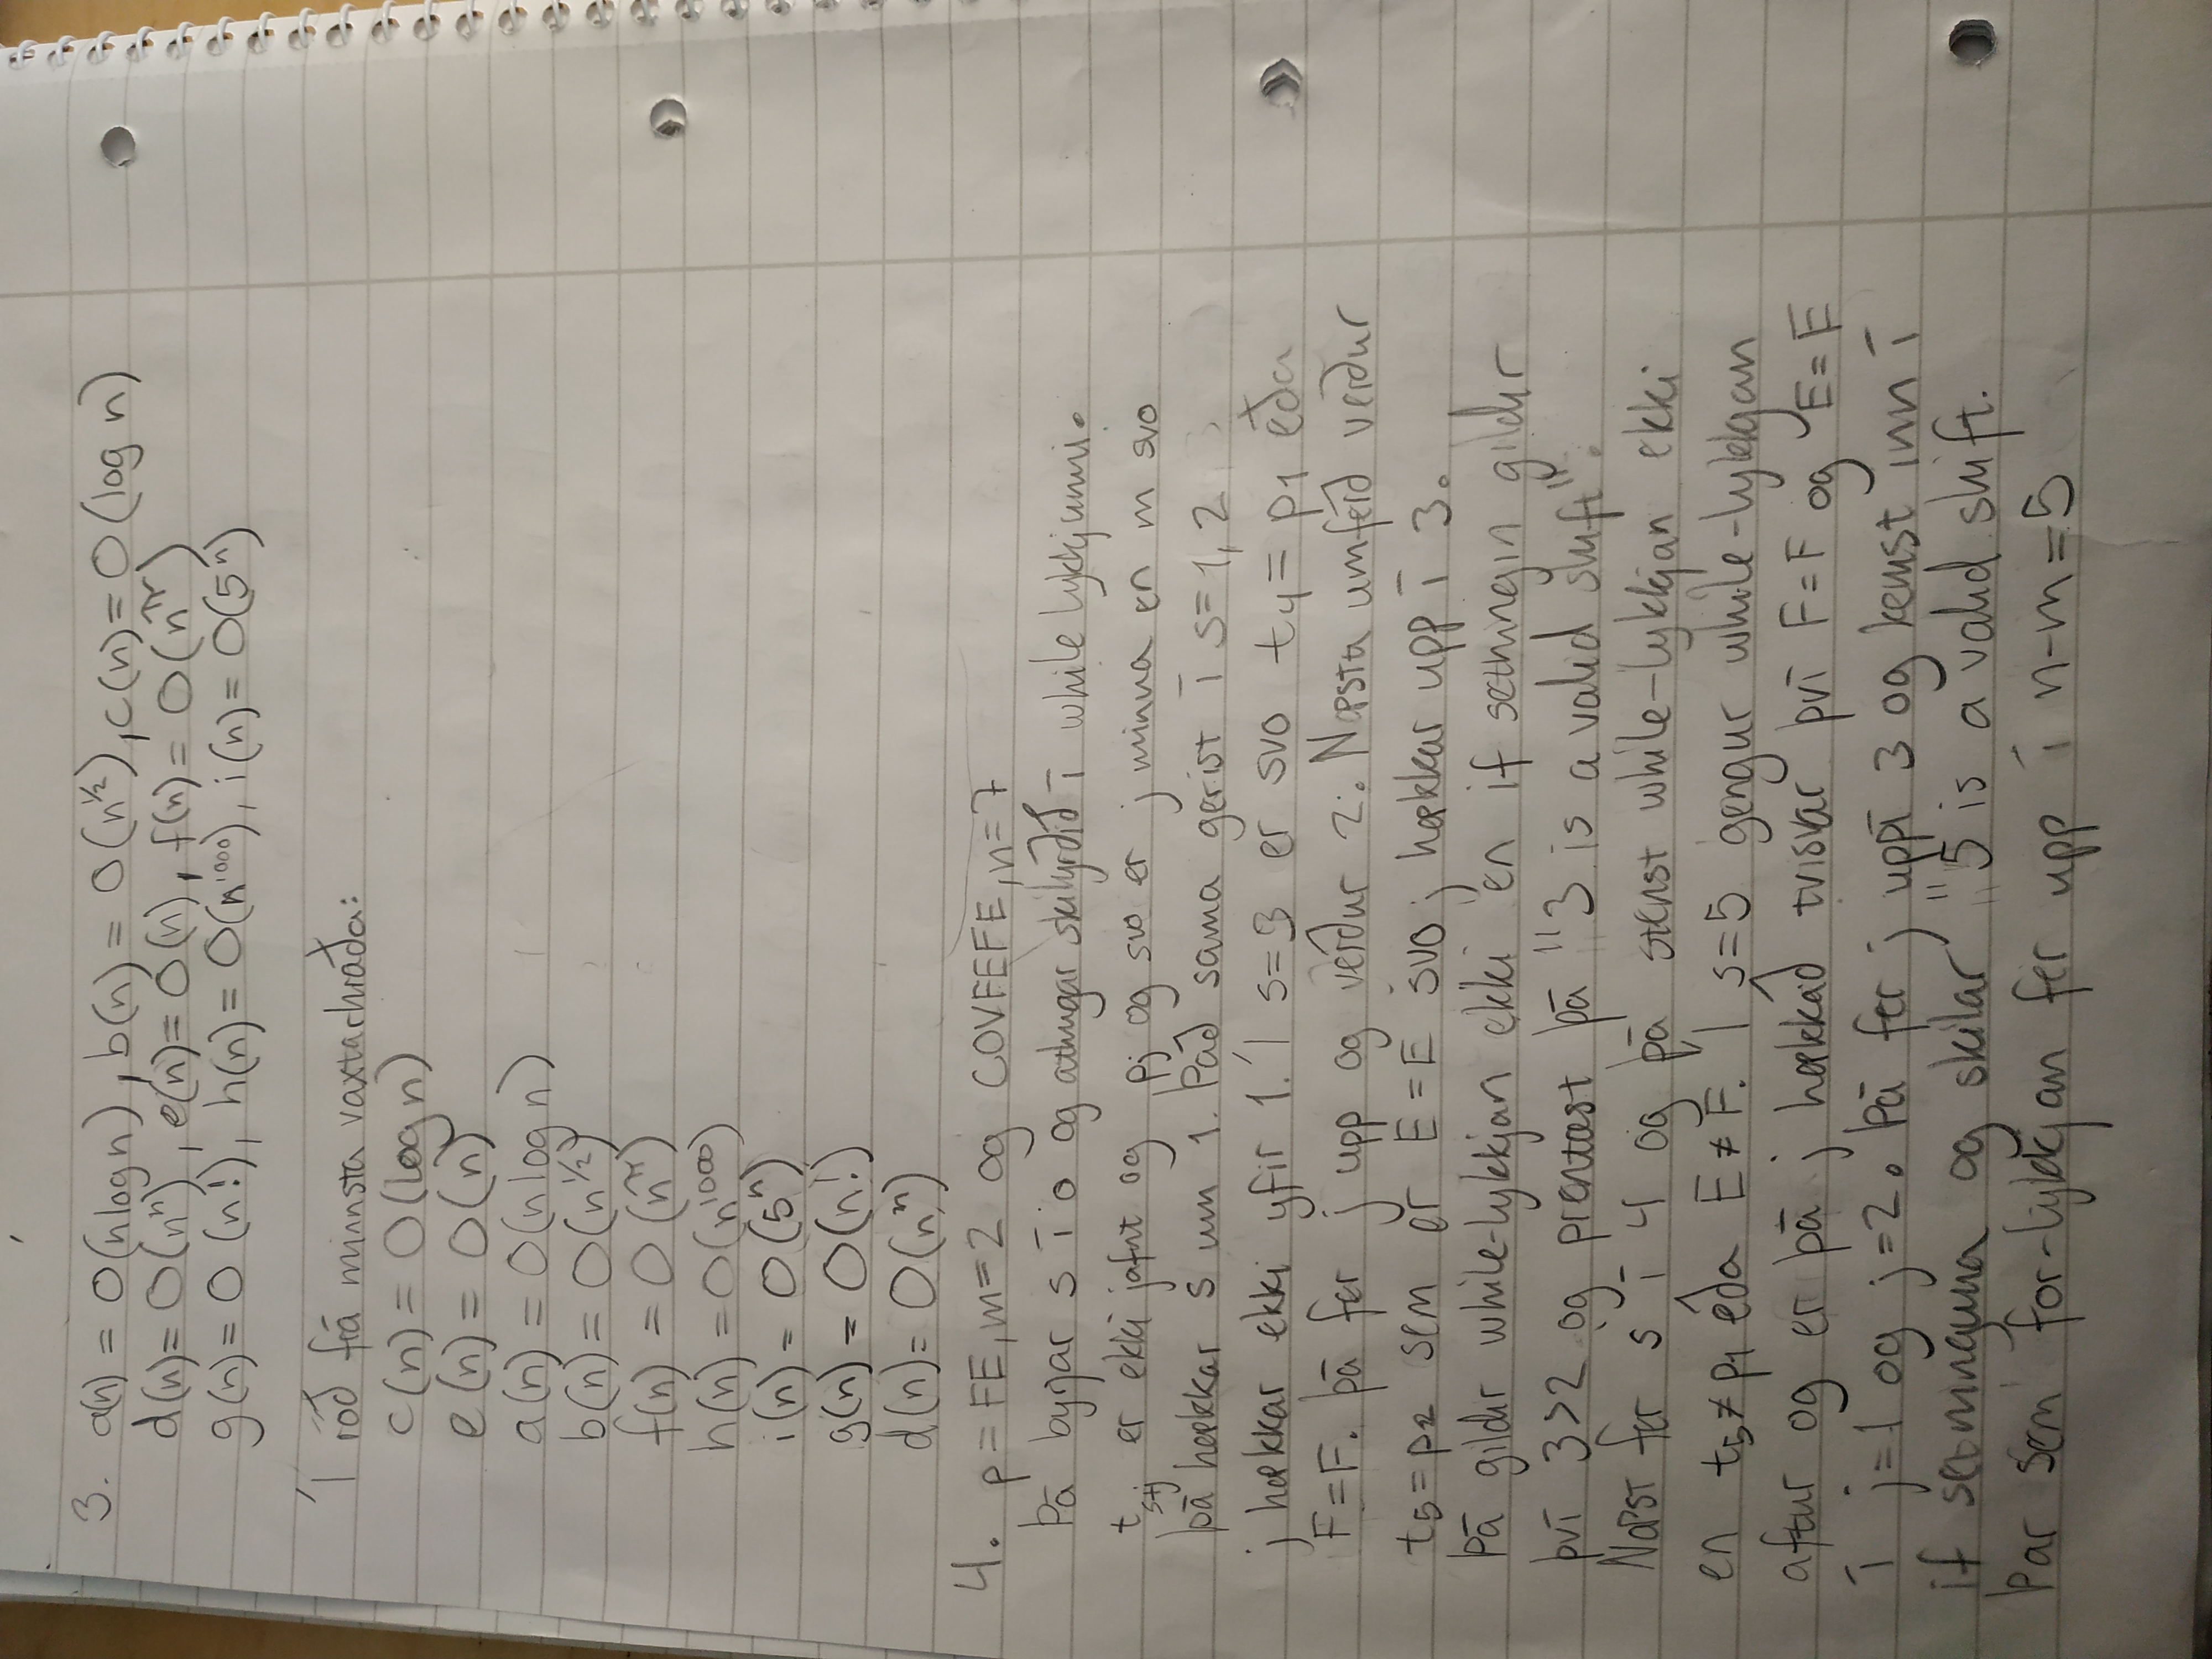 3. a(n) = O(n log n), b(n) = O(n^½), c(n) = O(log n)
d(n) = O(n^n), e(n) = O(n), f(n) = O(n^π)
g(n) = O(n!), h(n) = O(n^1000), i(n) = O(5^n)
Í röð frá minnsta vaxtarhraða:
c(n) = O(log n)
e(n) = O(n)
a(n) = O(n log n)
b(n) = O(n^½)
f(n) = O(n^π)
h(n) = O(n^1000)
i(n) = O(5^n)
g(n) = O(n!)
d(n) = O(n^n)
4. p = FE, m=2 og COVFEFE, n=7
Þá byrjar s í 0 og athugar skilyrðið í while lykkjunni.
t_s+j er ekki jafnt og pj og svo er j minna en m svo
þá hækkar s um 1. Það sama gerist í s=1, 2
j hækkar ekki yfir 1. Í s=3 er svo t4 = p1 eða
F=F. Þá fer j upp og verður 2. Næsta umferð verður
t5=p2 sem er E=E svo j hækkar upp í 3.
Þá gildir while-lykkjan ekki en if setningin gildir
því 3>2 og prentast þá "3 is a valid shift".
Næst fer s í 4 og þá stenst while-lykkjan ekki
en t5≠p1 eða E≠F. Í s=5 gengur while-lykkjan
aftur og er þá j hækkað tvisvar því F=F og E=E
í j=1 og j=2. Þá fer j uppí 3 og kemst inn í
if setninguna og skilar "5 is a valid shift.
Þar sem for-lykkjan fer upp í n-m=5